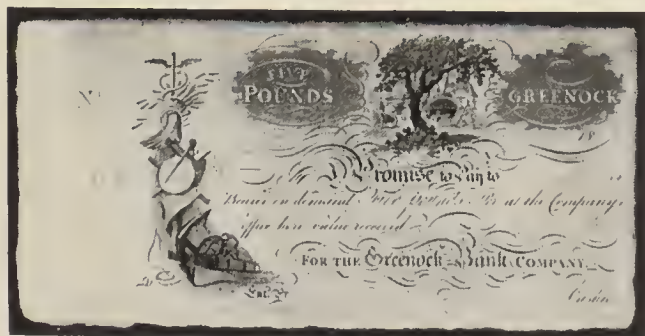 FIVE
POUNDS
GREENOCK
No.
18
Promise to pay to
Bearer on demand Five Pounds at the Company's
Office here value received
FOR THE Greenock Bank COMPANY